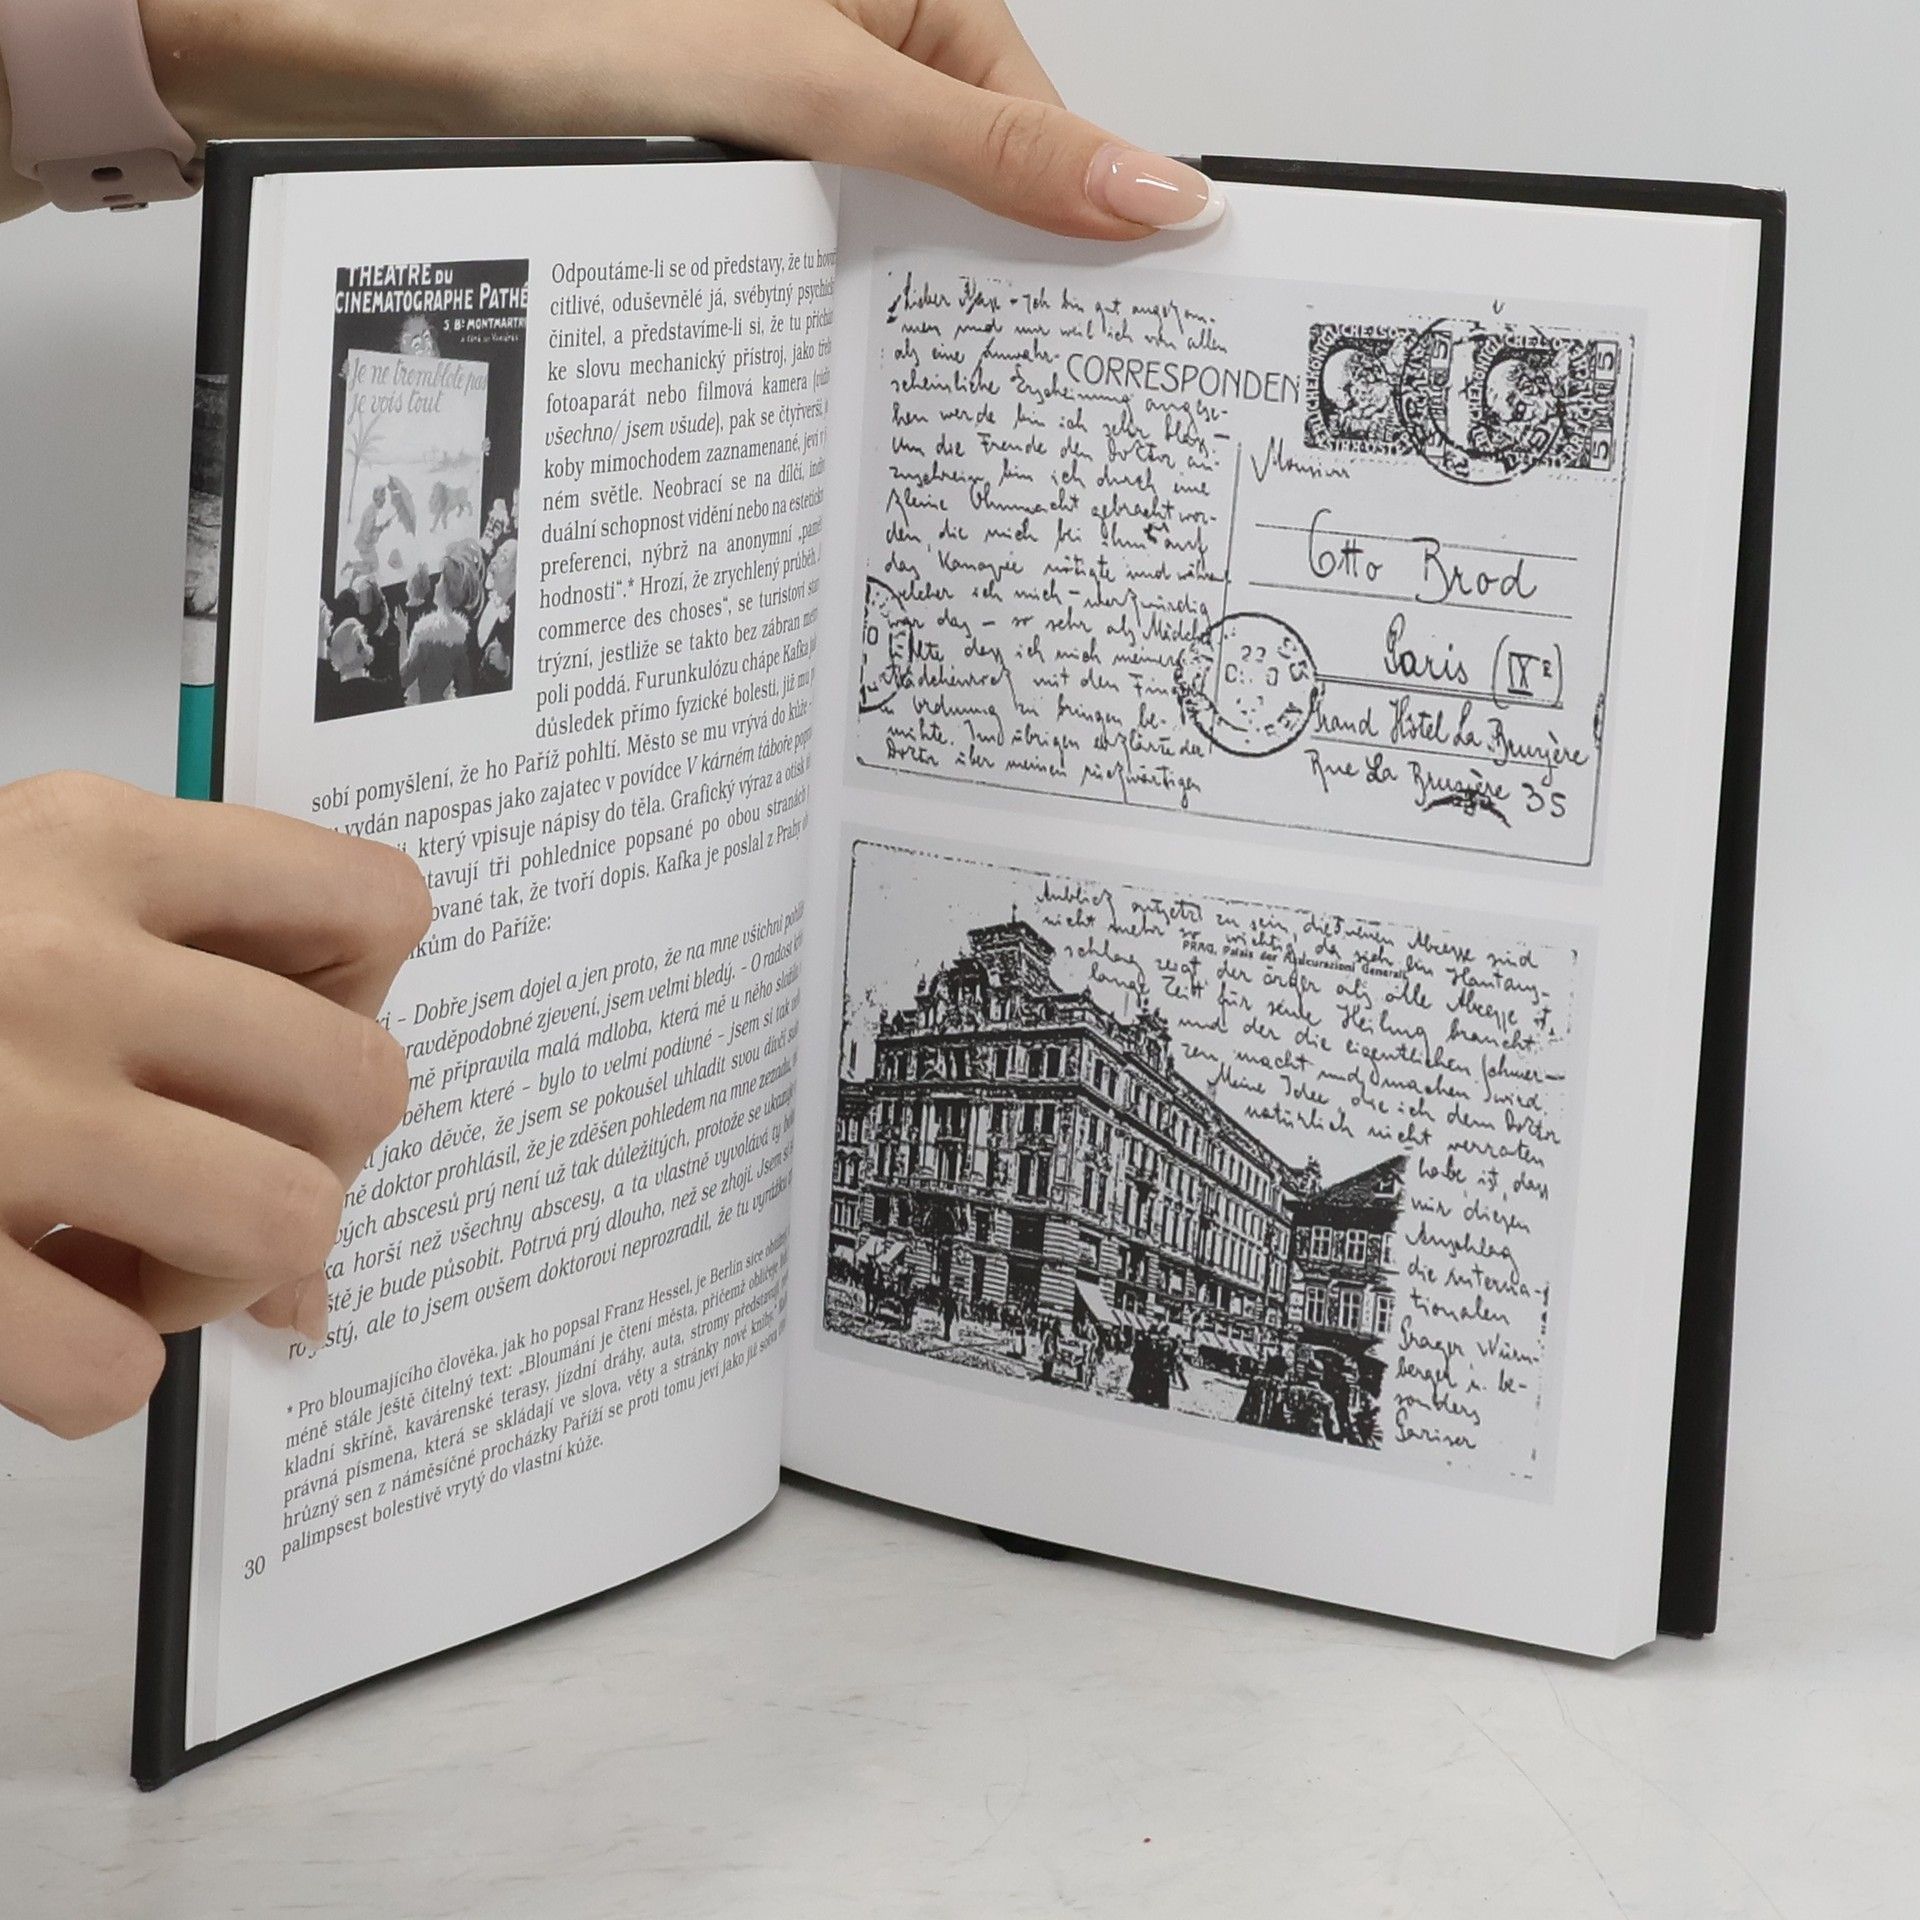 THÉATRE DU
CINÉMATOGRAPHE PATHÉ
5, BD MONTMARTRE
Je ne tremblote pas
je vois tout
Odpoutáme-li se od představy, že tu
citlivé, oduševnělé já, svébytný
činitel, a představíme-li si, že tu
ke slovu mechanický přístroj, jako
fotoaparát nebo filmová kamera
všechno/ jsem všude), pak se čtyřverší,
koby mimochodem zaznamenané, jeví
ném světle. Neobrací se na dílčí,
duální schopnost vidění nebo na
preferenci, nýbrž na anonymní
hodnosti“.* Hrozí, že zrychlený průběh
commerce des choses“, se turistovi
trýzní, jestliže se takto bez zábran
poli poddá. Furunkulózu chápe Kafka
důsledek přímo fyzické bolesti, již mu
sobí pomyšlení, že ho Paříž pohltí. Město se mu vrývá do kůže -
vydán napospas jako zajatec v povídce V kárném táboře
který vpisuje nápisy do těla. Grafický výraz a otisk
tavují tři pohlednice popsané po obou stranách
ované tak, že tvoří dopis. Kafka je poslal z Prahy
kům do Paříže:
– Dobře jsem dojel a jen proto, že na mne všichni
ravděpodobné zjevení, jsem velmi bledý. – O radost
mě připravila malá mdloba, která mě u něho
během které – bylo to velmi podivné – jsem si tak
jako děvče, že jsem se pokoušel uhladit svou dívčí
ně doktor prohlásil, že je zděšen pohledem na mne zezadu,
vých abscesů prý není už tak důležitých, protože se
ka horší než všechny abscesy, a ta vlastně vyvolává ty
ště je bude působit. Potrvá prý dlouho, než se zhojí. Jsem
stý, ale to jsem ovšem doktorovi neprozradil, že tu vyrážku
* Pro bloumajícího člověka, jak ho popsal Franz Hessel, je Berlín sice
méně stále ještě čitelný text: „Bloumání je čtení města, přičemž obličeje
kladní skříně, kavárenské terasy, jízdní dráhy, auta, stromy představují
právná písmena, která se skládají ve slova, věty a stránky nové knihy.“
hrůzný sen z náměsíčné procházky Paříží se proti tomu jeví jako již
palimpsest bolestivě vrytý do vlastní kůže.
30
Lieber Max – ich bin gut angekom-
men und nur weil ich von allen
als eine unwahr-
CORRESPONDEN
scheinliche Erscheinung angese-
hen werde bin ich sehr blass –
Um die Freude den Doktor an-
zuschreien bin ich durch eine
kleine Ohnmacht gebracht wor-
den, die mich bei ihm auf
das Kanapee nötigte und während
welcher ich mich – merkwürdig
war das – so sehr als Mädchen
fühlte dass ich mich meinen
Mädchenrock mit den Fingern
in Ordnung zu bringen be-
mühte. Im übrigen erklärte der
Doktor über meinen rückwärtigen
Monsieur
Otto Brod
Paris (IXe)
Grand Hôtel La Bruyère
Rue La Bruyère 35
Anblick entsetzt zu sein, die 5 neuen Abcesse sind
nicht mehr so wichtig, da sich ein Hautaus-
PRAG, Palais der Assicurazioni Generali
schlag zeigt der ärger als alle Abcesse ist
lange Zeit für seine Heilung braucht
und der die eigentlichen Schmer-
zen macht und machen wird.
Meine Idee, die ich dem Doktor
natürlich nicht verraten
habe, ist, dass
mir diesen
Ausschlag
die interna-
tionalen
Prager, Nürn-
berger u. be-
sonders
Pariser